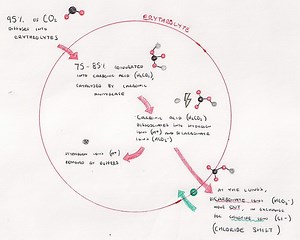 95% of CO₂
diffuses into
erythrocytes
ERYTHROCYTE
75 - 85% converted
into carbonic acid (H₂CO₃)
catalysed by carbonic
anhydrase
Carbonic acid (H₂CO₃)
dissociates into hydrogen
ions (H⁺) and bicarbonate
ions (HCO₃⁻)
Hydrogen ions (H⁺)
removed by buffers
At the lungs,
bicarbonate ions (HCO₃⁻)
move out, in exchange
for chloride ions (Cl-)
(CHLORIDE SHIFT)